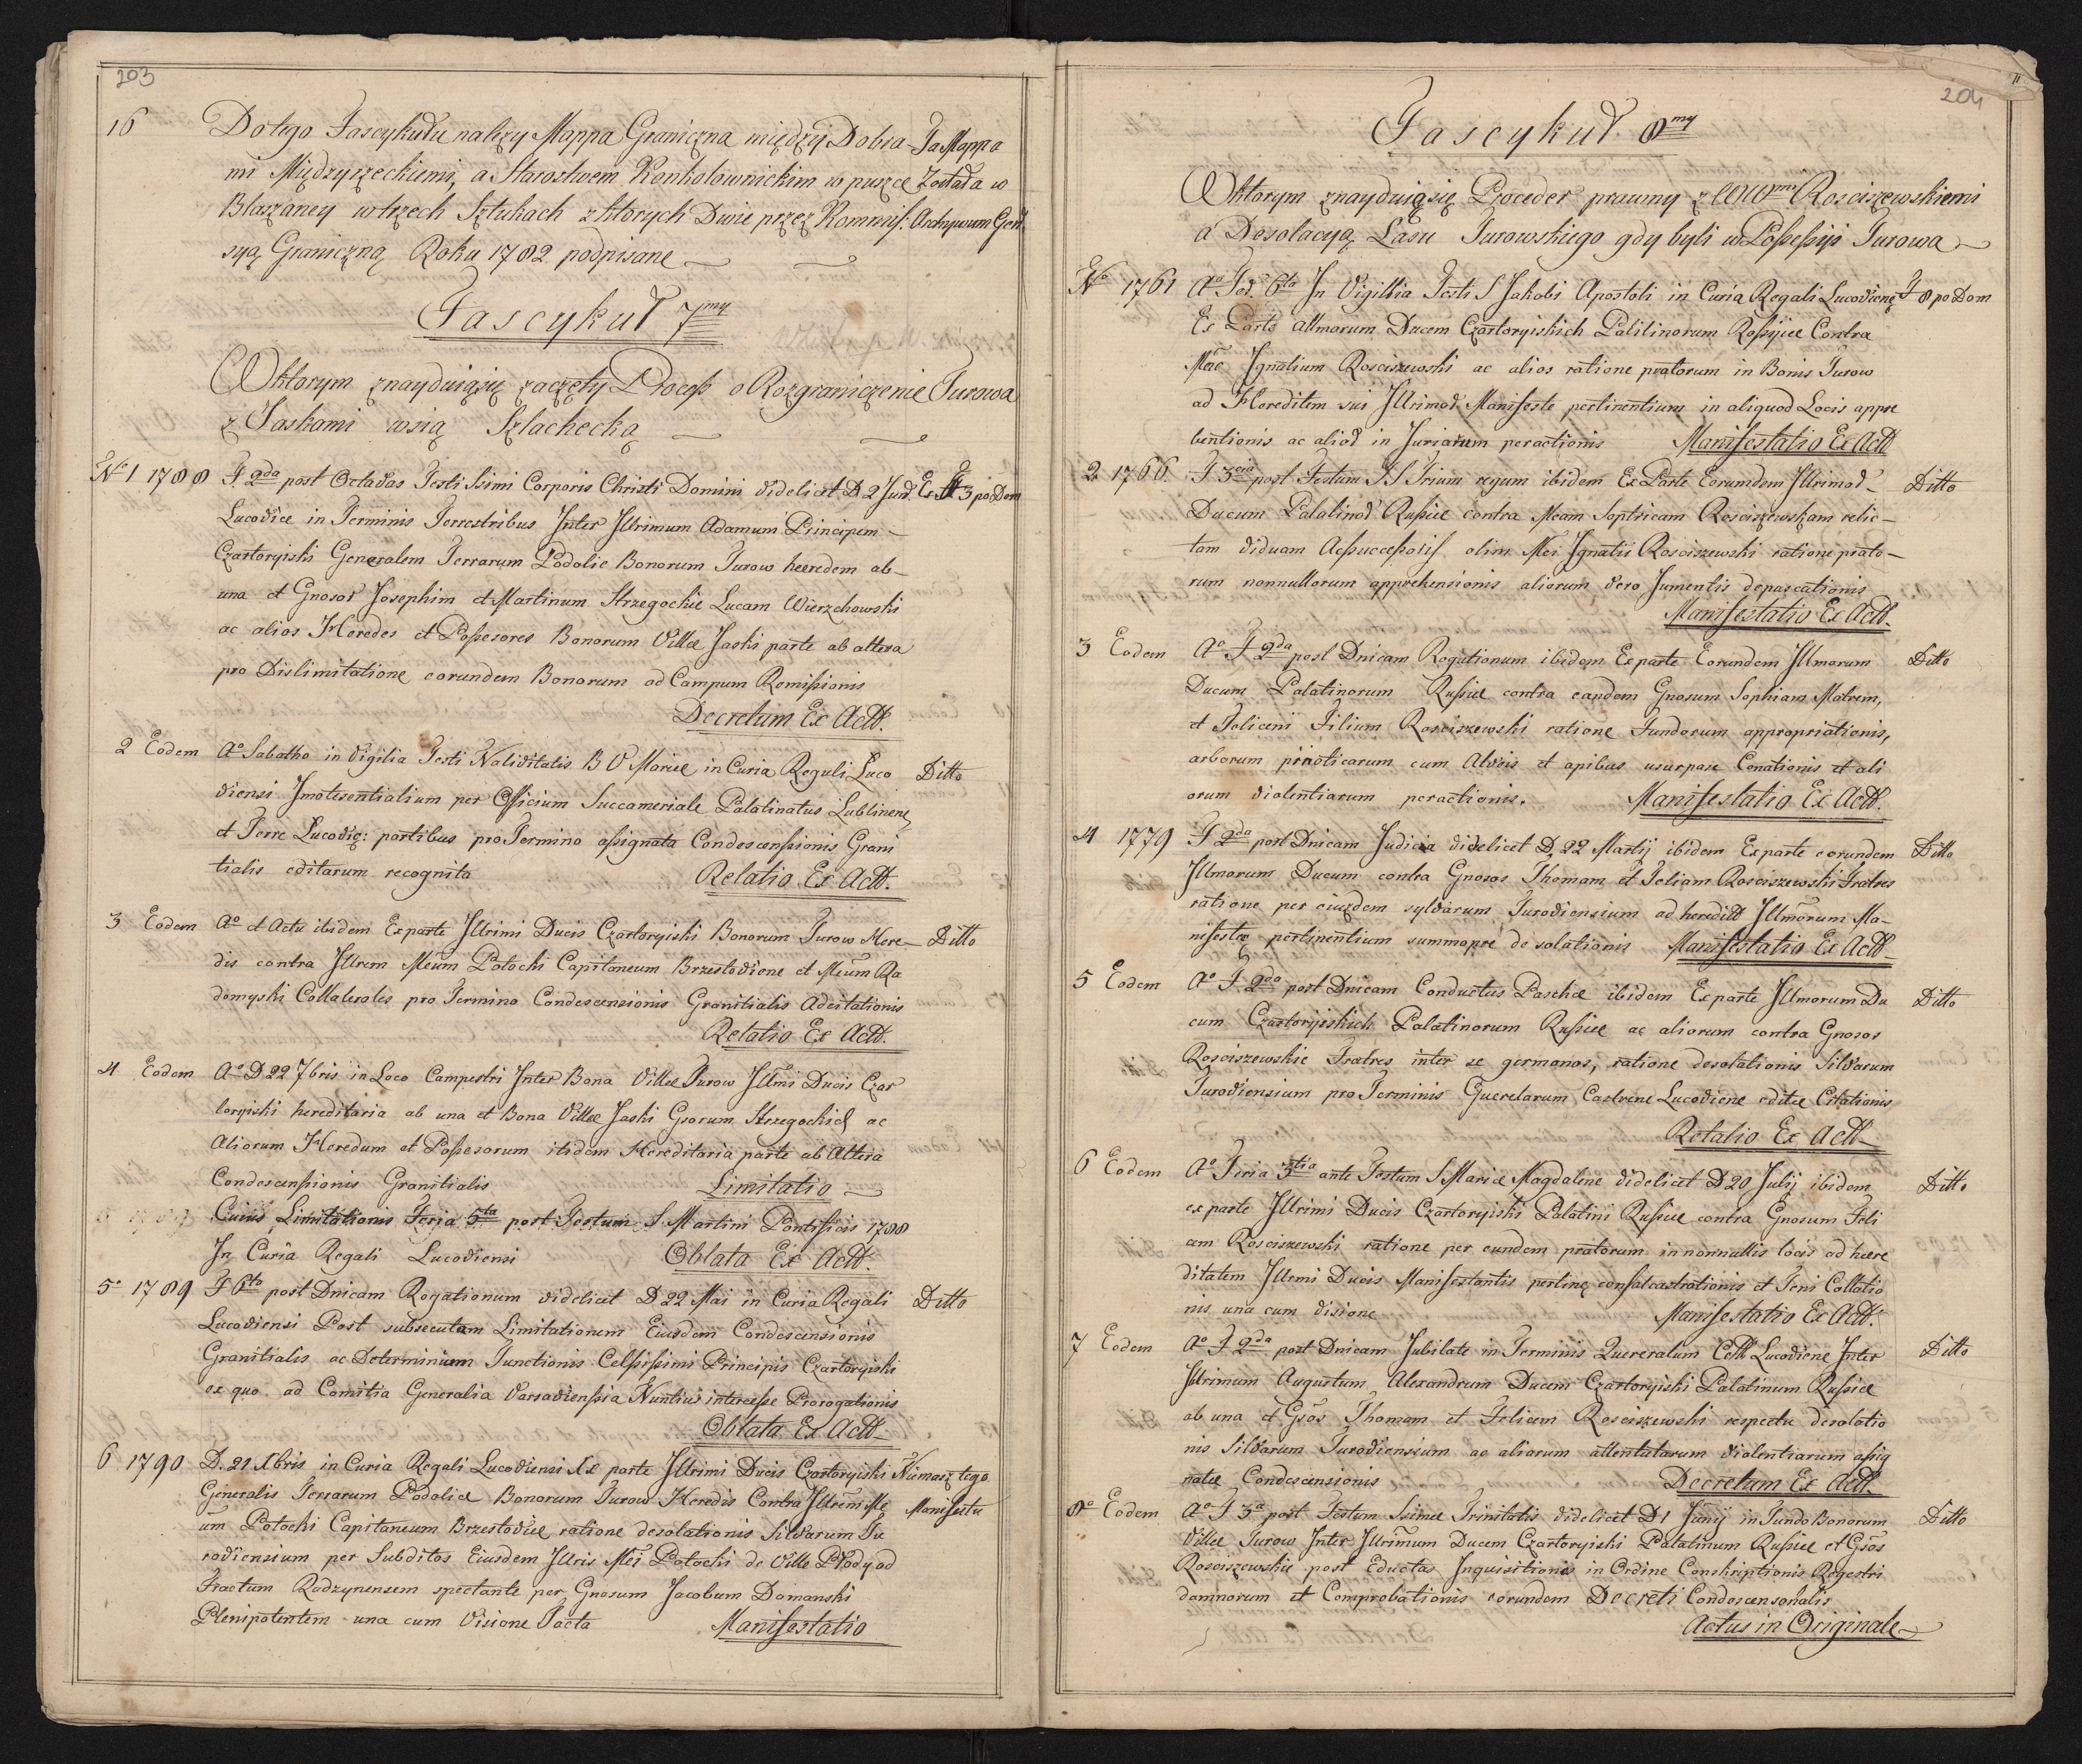 203
16 Dotego Fascykułu należy Mappa Graniczna między Dobra- Ta Mappa
mi Międzyrzeckiemi, a Starostwem Konkolownickim w puszce Została w
Blaszaney w trzech Sztukach z ktorych Dwie przez Kommis- Archywum Gen̄l.
syą Graniczną Roku 1782 podpisane
Fascykuł 7my
W ktorym znayduiąsię zaczęty Process o Rozgraniczenie Turowa
z Jaskami wsią Szlachecką
No 1 1788 F. 2da post Octavas Festi Ssimi Corporis Christi Domini videlicet D 2 Jun. Ex F 3 po Dom
Lucoviæ in Terminis Terrestribus Inter Jllrimum Adamum Principem
Czartoryiski Generalem Terrarum Podoliæ Bonorum Turow heredem ab
una et Gnosos Josephim et Martinum Strzegockie Lucam Wierzchowski
ac alios Heredes et Possesores Bonorum Villæ Jaski parte ab altera
pro Dislimitatione eorundem Bonorum ad Campum Remissionis
Decretum Ex Actt.
2 Eodem Ao Sabatho in Vigilia Festi Nativitatis B V Mariæ in Curia Regali Luco Ditto
viensi Jnotesentialium per Officium Succameriale Palatinatus Lublinens
et Terre Lucovię: partibus pro Termino assignata Condescensionis Grani
tialis editarum recognita Relatio Ex Actt.
3 Eodem Ao et Actu ibidem Ex parte Jllrimi Ducis Czartoryiski Bonorum Turow Here- Ditto
dis contra Jllrem Meum Potocki Capitaneum Brzestoviene et Meum Ra
domyski Collaterales pro Termino Condescensionis Granitialis Adcitationis
Relatio Ex Actt.
4 Eodem Ao D 22 7bris in Loco Campestri Inter Bona Villæ Turow Jllmi Ducis Czar
toryiski hereditaria ab una et Bona Villæ Jaski Gsorum Strzegockich ac
Aliorum Heredum et Possesorum itidem Hereditaria parte ab Altera
Condescensionis Granitialis Limitatio
Cuius Limitationis Feria 5ta post Festum S Martini Pontificis 1788
In Curia Regali Lucoviensi Oblata Ex Actt.
5o 1789 F 6ta post Dnicam Rogationum videlicet D 22 Mai in Curia Regali Ditto
Lucoviensi Post subsecutam Limitationem Eiusdem Condescensionis
Granitialis ac Determinium Functionis Celsissimi Principis Czartoryiski
ex quo ad Comitia Generalia Varsaviensia Nuntius interesse Prorogationis
Oblata Ex Actt
6 1790 D. 21 Xbris in Curia Regali Lucoviensi Ex parte Jllrimi Ducis Czartoryiski Niemasz tego
Generalis Terrarum Podoliæ Bonorum Turow Heredis Contra Jllrem Me Manifestu
um Potocki Capitaneum Brzestoviæ ratione desolationis Silvarum Tu
roviensium per Subditos Eiusdem Jllris Mei Potocki de Villa Płody ad
Tractum Radzynensem spectante per Gnosum Jacobum Domanski
Plenipotentem una cum Visione Facta Manifestatio
204
Fascykuł 8my
W ktorym znayduiąsię Proceder prawny z WWmi Rosciszewskiemi
a Desolacyą Lasu Turowskiego gdy byli w Possessyi Turowa
No 1761 Ao Fer. 6ta In Vigillia Festi S Jakobi Apostoli in Curia Regali Lucoviene F 8 po Dom
Ex Parte Allmorum Ducem Czartoryiskich Palitinorum Rossyiæ Contra
Mac Ignatium Rosciszewski ac alios ratione pratorum in Bonis Turow
ad Hereditem sui Jllrimor Manifeste pertinentium in aliquod Locis appre
hentionis ac aliod in Juriarum peractionis Manifestatio Ex Actt
2 1766. F 3cia post Festum SS Trium regum ibidem Ex Parte Eorumdem Jllrimod Ditto
Ducum Palatinod Russiæ contra Meam Soptricam Rosciszewskam relic-
tam viduam Acsuccessoris olim Mei Ignatii Rosciszewski ratione prato-
rum nonnullorum apprehensionis aliorum vero Jumentis depascationis
Manifestatio Ex Actt.
3 Eodem Ao F 2da post Dnicam Rogationum ibidem Ex parte Eorundem Jllmorum Ditto
Ducum Palatinorum Russiæ contra eandem Gnosum Sophiam Matrem,
et Felicem Filium Rosciszewski ratione Fundorum appropriationis,
arborum pinoticarum cum Alveis et apibus usurpase Conationis et ali
orum violentiarum peractionis. Manifestatio Ex Actt.
4 1779 F 2da post Dnicam Judica videlicet D. 22 Martij ibidem Ex parte eorundem Ditto
Jllmorum Ducum contra Gnosos Thomam et Feliam Rosciszewski Fratres
ratione per eiusdem sylvarum Turoviensium ad heredittt Jllmorum Ma-
nifestę pertinentium summopre desolationis Manifestatio Ex Actt
5 Eodem Ao F 2da post Dnicam Conductus Paschæ ibidem Ex parte Jllmorum Du Ditto
cum Czartoryiskich Palatinorum Russiæ ac aliorum contra Gnosos
Rosciszewskie Fratres inter se germanos, ratione desolationis Silvarum
Turoviensium pro Terminis Querelarum Castrene Lucoviene editæ Citationis
Relatio Ex Actt
6 Eodem Ao Feria 3tia ante Festum S Mariæ Magdalene videlicet D 20 Julij ibidem Ditto
ex parte Jllrimi Ducis Czartoryiski Palatini Russiæ contra Gnosum Feli
cem Rosciszewski ratione per eundem pratorum in nonnullis locis ad hære
ditatem Jllrmi Ducis Manifestantis pertinę confalcastrationis et Feni Collatio
nis una cum visione Manifestatio Ex Actt.
7 Eodem Ao F 2da post Dnicam Jubilate in Terminis Quereralum Ctt Lucoviene Inter Ditto
Jllrimum Augustum Alexandrum Ducem Czartoryiski Palatinum Russiæ
ab una et Gsos Thomam et Felicem Rosciszewski respectu desolatio
nis Silvarum Turoviensium ac aliorum attentatarum violentiarum assig
natæ Condescensionis Decretum Ex Actt.
8o Eodem Ao F 3a post Festum Ssimæ Trinitatis videlicet D 1 Junij in Fundo Bonorum Ditto
Villæ Turow Inter Jllrimum Ducem Czartoryiski Palatinum Russiæ et Gsos
Rosciszewskie post Eductas Inquisitionis in Ordine Conskriptionis Regestri
damnorum et Comprobationis eorundem Decreti Condescensonalis
Actus in Originale